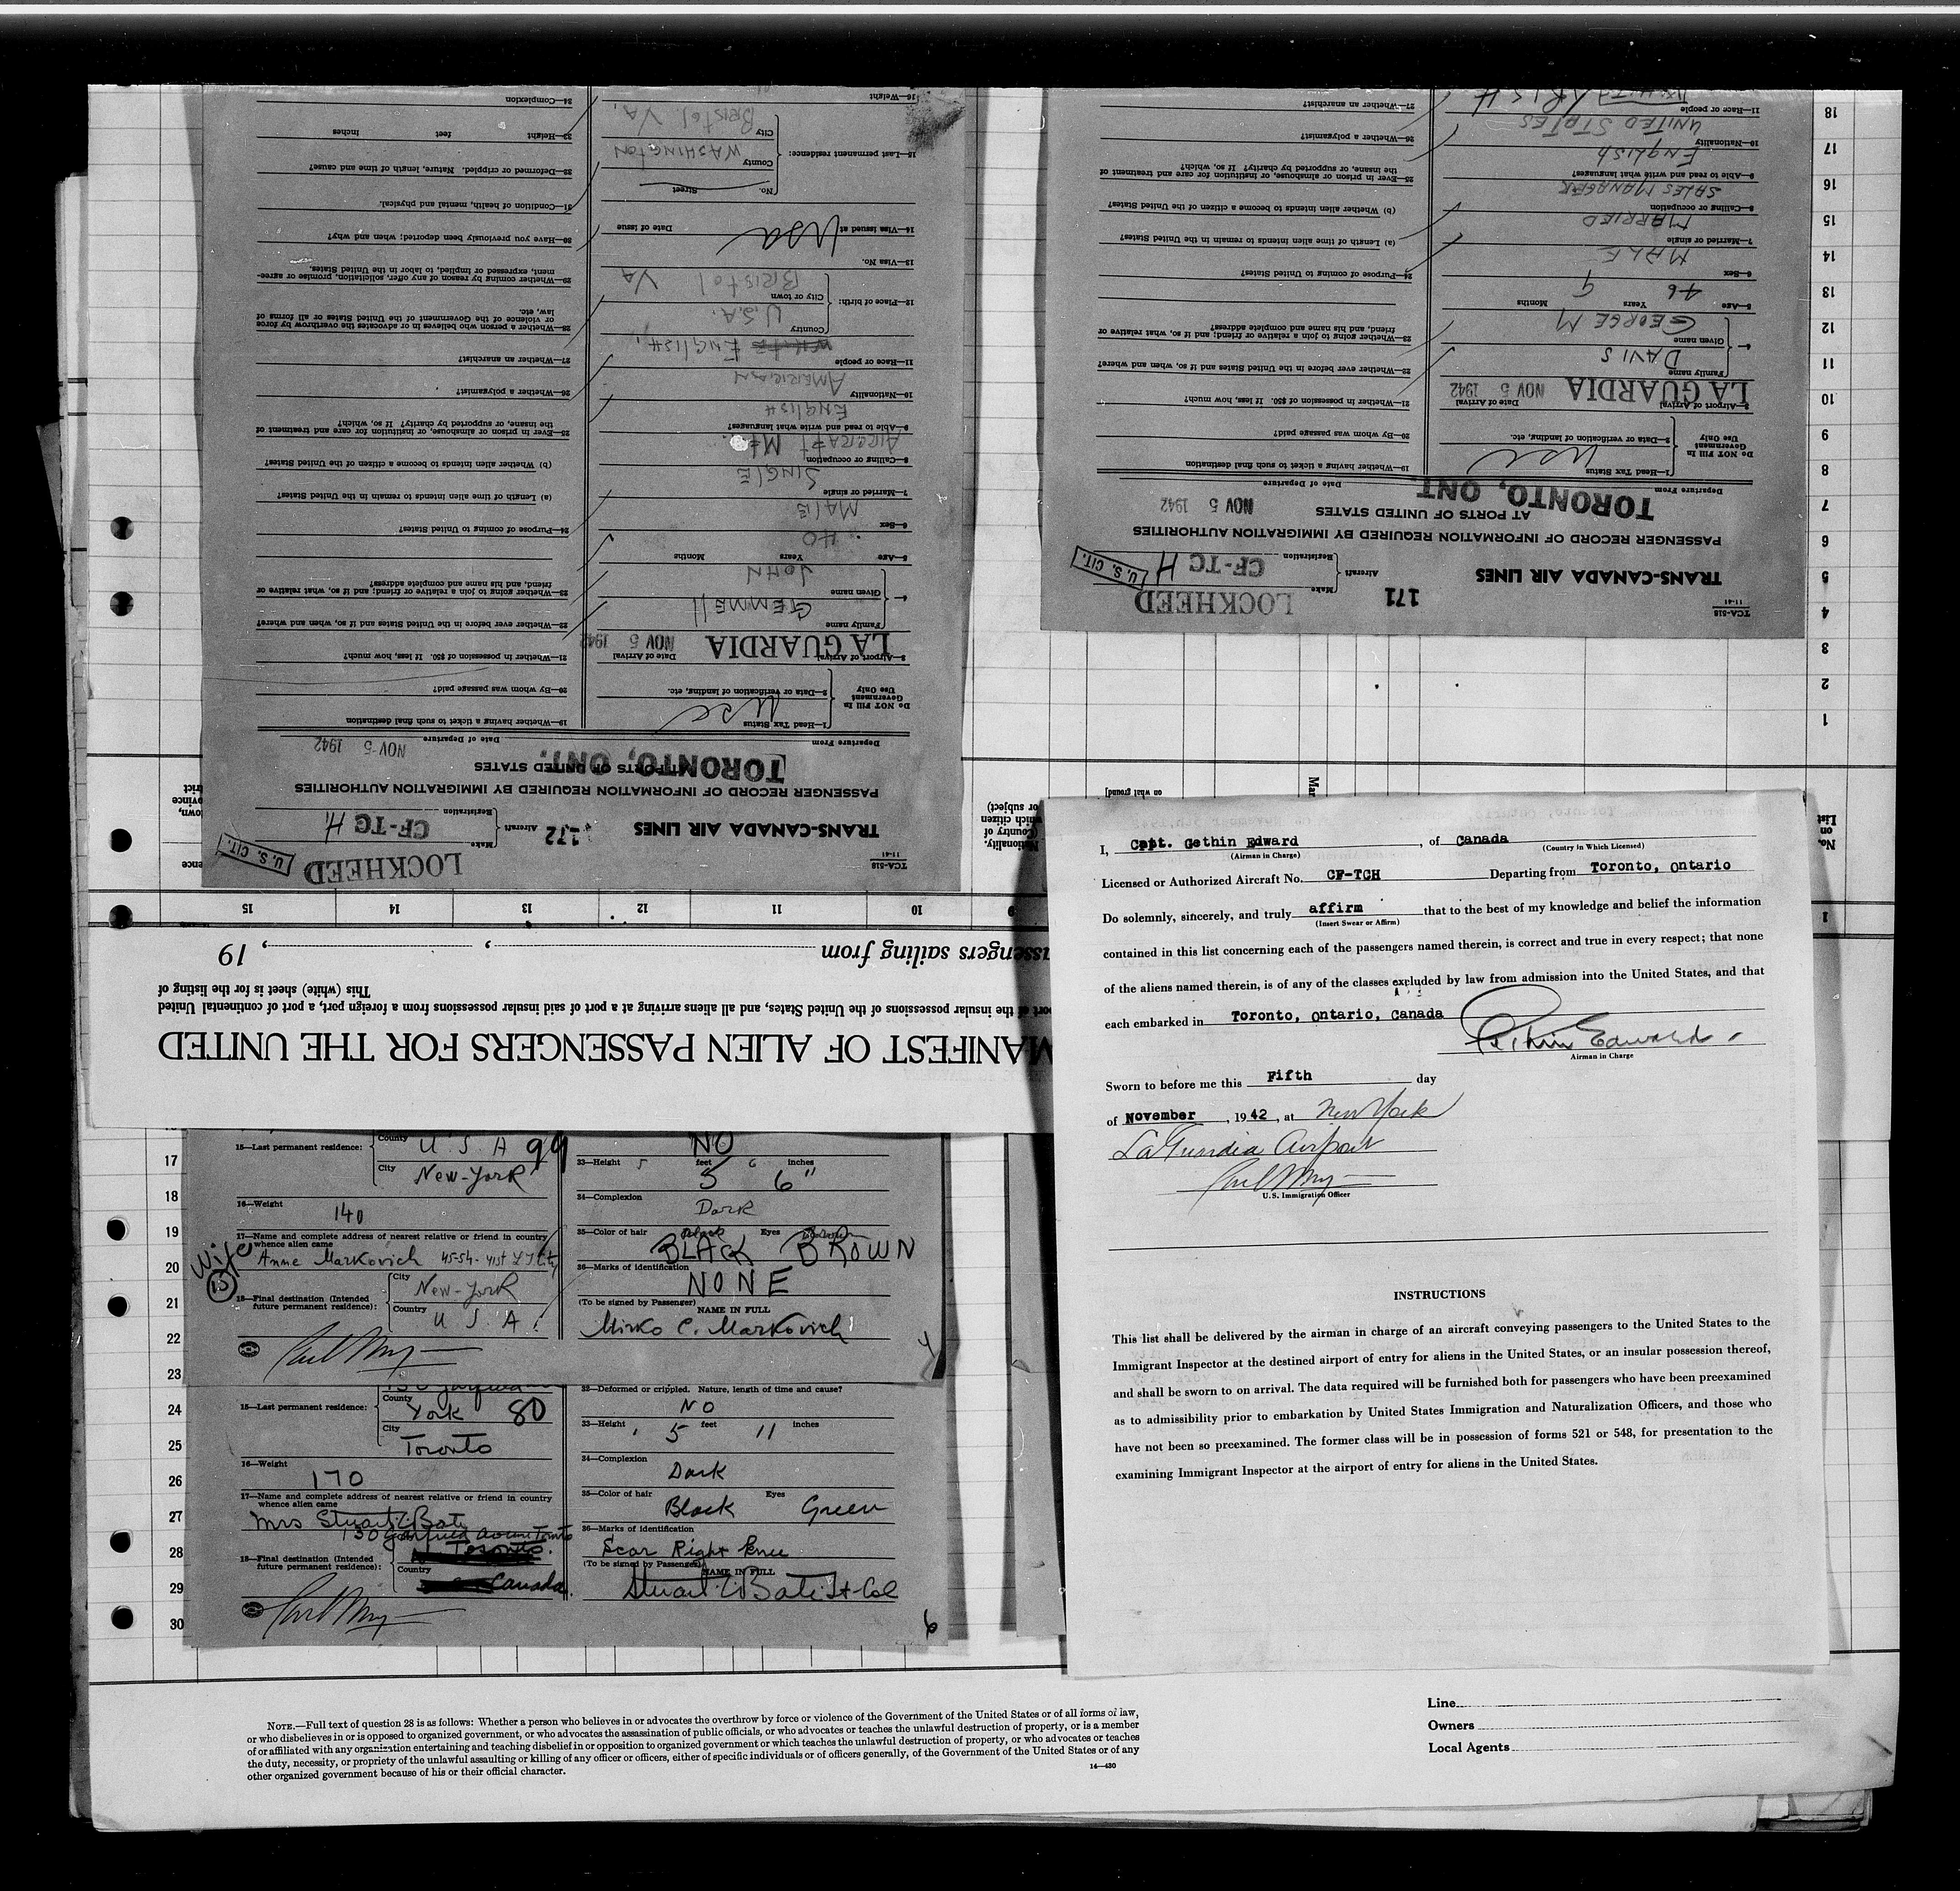 TCA-518
11-41
TRANS-CANADA AIR LINES
172
Aircraft
Make
LOCKHEED
Registration
CF-TC H
U. S. CIT.
PASSENGER RECORD OF INFORMATION REQUIRED BY IMMIGRATION AUTHORITIES
AT PORTS OF UNITED STATES
Departure From
TORONTO, ONT.
Date of Departure
NOV 5 1942
DO NOT FILL IN
Government
Use Only
1—Head Tax Status
usc
2—Data or verification of landing, etc.
3—Airport of Arrival
LA GUARDIA
Date of Arrival
NOV 5 1942
4—
Family name
GEMMELL
Given name
JOHN
5—Age
40
Years
Months
6—Sex
MALE
7—Married or single
SINGLE
8—Calling or occupation
9—Able to read and write what languages?
ENGLISH
10—Nationality
AMERICAN
11—Race or people
ENGLISH
12—Place of birth:
Country
U.S.A.
City or town
BRISTOL VA
13—Visa No.
14—Visa issued at
USA
Date of issue
15—Last permanent residence:
No.
Street
County
WASHINGTON
City
BRISTOL VA.
16—Weight
19—Whether having a ticket to such final destination
20—By whom was passage paid?
21—Whether in possession of $50. If less, how much?
22—Whether ever before in the United States and if so, when and where?
23—Whether going to join a relative or friend; and if so, what relative or
friend, and his name and complete address?
24—Purpose of coming to United States?
(a) Length of time alien intends to remain in the United States?
(b) Whether alien intends to become a citizen of the United States?
25—Ever in prison or almshouse, or institution for care and treatment of
the insane, or supported by charity? If so, which?
26—Whether a polygamist?
27—Whether an anarchist?
28—Whether a person who believes in or advocates the overthrow by force
or violence of the Government of the United States or all forms of
law, etc.
29—Whether coming by reason of any offer, solicitation, promise or agree-
ment, expressed or implied, to labor in the United States.
30—Have you previously been deported; when and why?
31—Condition of health, mental and physical.
32—Deformed or crippled. Nature, length of time and cause?
33—Height
feet
inches
34—Complexion
TCA-518
11-41
TRANS-CANADA AIR LINES
171
Aircraft
Make
LOCKHEED
Registration
CF-TC H
U. S. CIT.
PASSENGER RECORD OF INFORMATION REQUIRED BY IMMIGRATION AUTHORITIES
AT PORTS OF UNITED STATES
Departure From
TORONTO, ONT.
Date of Departure
NOV 5 1942
DO NOT FILL IN
Government
Use Only
1—Head Tax Status
usc
2—Data or verification of landing, etc.
3—Airport of Arrival
LA GUARDIA
Date of Arrival
NOV 5 1942
4—
Family name
DAVIS
Given name
GEORGE M
5—Age
46
Years
9
Months
6—Sex
MALE
7—Married or single
MARRIED
8—Calling or occupation
SALES MANAGER
9—Able to read and write what languages?
ENGLISH
10—Nationality
UNITED STATES
11—Race or people
19—Whether having a ticket to such final destination
20—By whom was passage paid?
21—Whether in possession of $50. If less, how much?
22—Whether ever before in the United States and if so, when and where?
23—Whether going to join a relative or friend; and if so, what relative or
friend, and his name and complete address?
24—Purpose of coming to United States?
(a) Length of time alien intends to remain in the United States?
(b) Whether alien intends to become a citizen of the United States?
25—Ever in prison or almshouse, or institution for care and treatment of
the insane, or supported by charity? If so, which?
26—Whether a polygamist?
27—Whether an anarchist?
1
2
3
4
5
6
7
8
9
10
11
12
13
14
15
16
17
18
MANIFEST OF ALIEN PASSENGERS FOR THE UNITED
port of the insular possessions of the United States, and all aliens arriving at a port of said insular possessions from a foreign port, a port of continental United
This (white) sheet is for the listing of
passengers sailing from , , 19
1
9
10
11
12
13
14
15
No.
on
List
Nationality.
(Country of
which citizen
or subject)
I, Capt. Gethin Edward, of Canada
(Airman in Charge) (Country in Which Licensed)
Licensed or Authorized Aircraft No. CF-TCH Departing from Toronto, Ontario
Do solemnly, sincerely, and truly affirm that to the best of my knowledge and belief the information
(Insert Swear or Affirm)
contained in this list concerning each of the passengers named therein, is correct and true in every respect; that none
of the aliens named therein, is of any of the classes excluded by law from admission into the United States, and that
each embarked in Toronto, Ontario, Canada
Gethin Edward
Airman in Charge
Sworn to before me this Fifth day
of November, 1942, at New York
La Guardia Airport
U.S. Immigration Officer
INSTRUCTIONS
This list shall be delivered by the airman in charge of an aircraft conveying passengers to the United States to the
Immigrant Inspector at the destined airport of entry for aliens in the United States, or an insular possession thereof,
and shall be sworn to on arrival. The data required will be furnished both for passengers who have been preexamined
as to admissibility prior to embarkation by United States Immigration and Naturalization Officers, and those who
have not been so preexamined. The former class will be in possession of forms 521 or 548, for presentation to the
examining Immigrant Inspector at the airport of entry for aliens in the United States.
17
18
19
20
21
22
23
24
25
26
27
28
29
30
15—Last permanent residence:
County
U. S. A 99
City
New-York
16—Weight
140
17—Name and complete address of nearest relative or friend in country
whence alien came
Wife
Anne Markovich 45-54- 41st L I City
15
18—Final destination (Intended
future permanent residence):
City
New-York
Country
U S A.
NO
33—Height 5 feet 6 inches
5 6"
34—Complexion
Dark
35—Color of hair Black Eyes Brown
BLACK BROWN
36—Marks of identification
NONE
(To be signed by Passenger)
NAME IN FULL
Mirko C. Markovich
4
15—Last permanent residence:
County
York 80
City
Toronto
16—Weight
170
17—Name and complete address of nearest relative or friend in country
whence alien came
Mrs Stuart C Bate
130 Garfield Avenue Toronto
18—Final destination (Intended
future permanent residence):
Toronto.
Country
Canada.
32—Deformed or crippled. Nature, length of time and cause?
NO
33—Height 5 feet 11 inches
34—Complexion
Dark
35—Color of hair Eyes
Black Green
36—Marks of identification
Scar Right knee
(To be signed by Passenger)
NAME IN FULL
Stuart C Bate Lt-Col
6
NOTE.—Full text of question 28 is as follows: Whether a person who believes in or advocates the overthrow by force or violence of the Government of the United States or of all forms of law,
or who disbelieves in or is opposed to organized government, or who advocates the assassination of public officials, or who advocates or teaches the unlawful destruction of property, or is a member
of or affiliated with any organization entertaining and teaching disbelief in or opposition to organized government or which teaches the unlawful destruction of property, or who advocates or teaches
the duty, necessity, or propriety of the unlawful assaulting or killing of any officer or officers, either of specific individuals or of officers generally, of the Government of the United States or of any
other organized government because of his or their official character.
14—430
Line
Owners
Local Agents